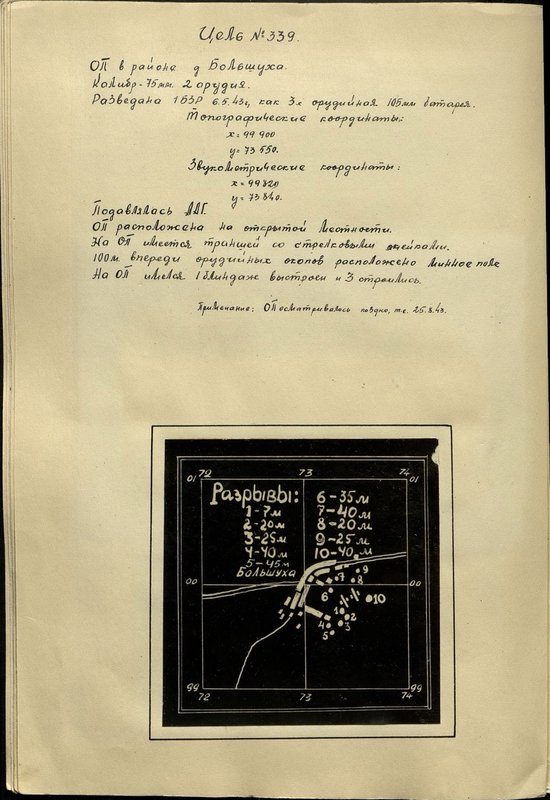 Цель №339.
ОП в районе д Большуха.
Калибр-75мм. 2 орудия.
Разведана 1БЗР 6.5.43г, как 3х орудийная 105мм батарея.
Топографические координаты:
x=99900
y=73550.
Звукометрические координаты:
x=99820
y=73840.
Подавлялась ААГ.
ОП расположена на открытой местности.
На ОП имеется траншея со стрелковыми ячейками.
100м впереди орудийных окопов расположено минное поле
На ОП имелся 1 блиндаж выстроен и 3 строились.
Примечание: ОП осматривалось поздно, т.е. 25.8.43.
01 72 73 74 01
Разрывы:
1-7м
2-20м
3-25м
4-40м
5-45м
6-35м
7-40м
8-20м
9-25м
10-40м
Большуха
00 00
9
7
8
6
10
1
2
3
4
5
99 99
72 73 74